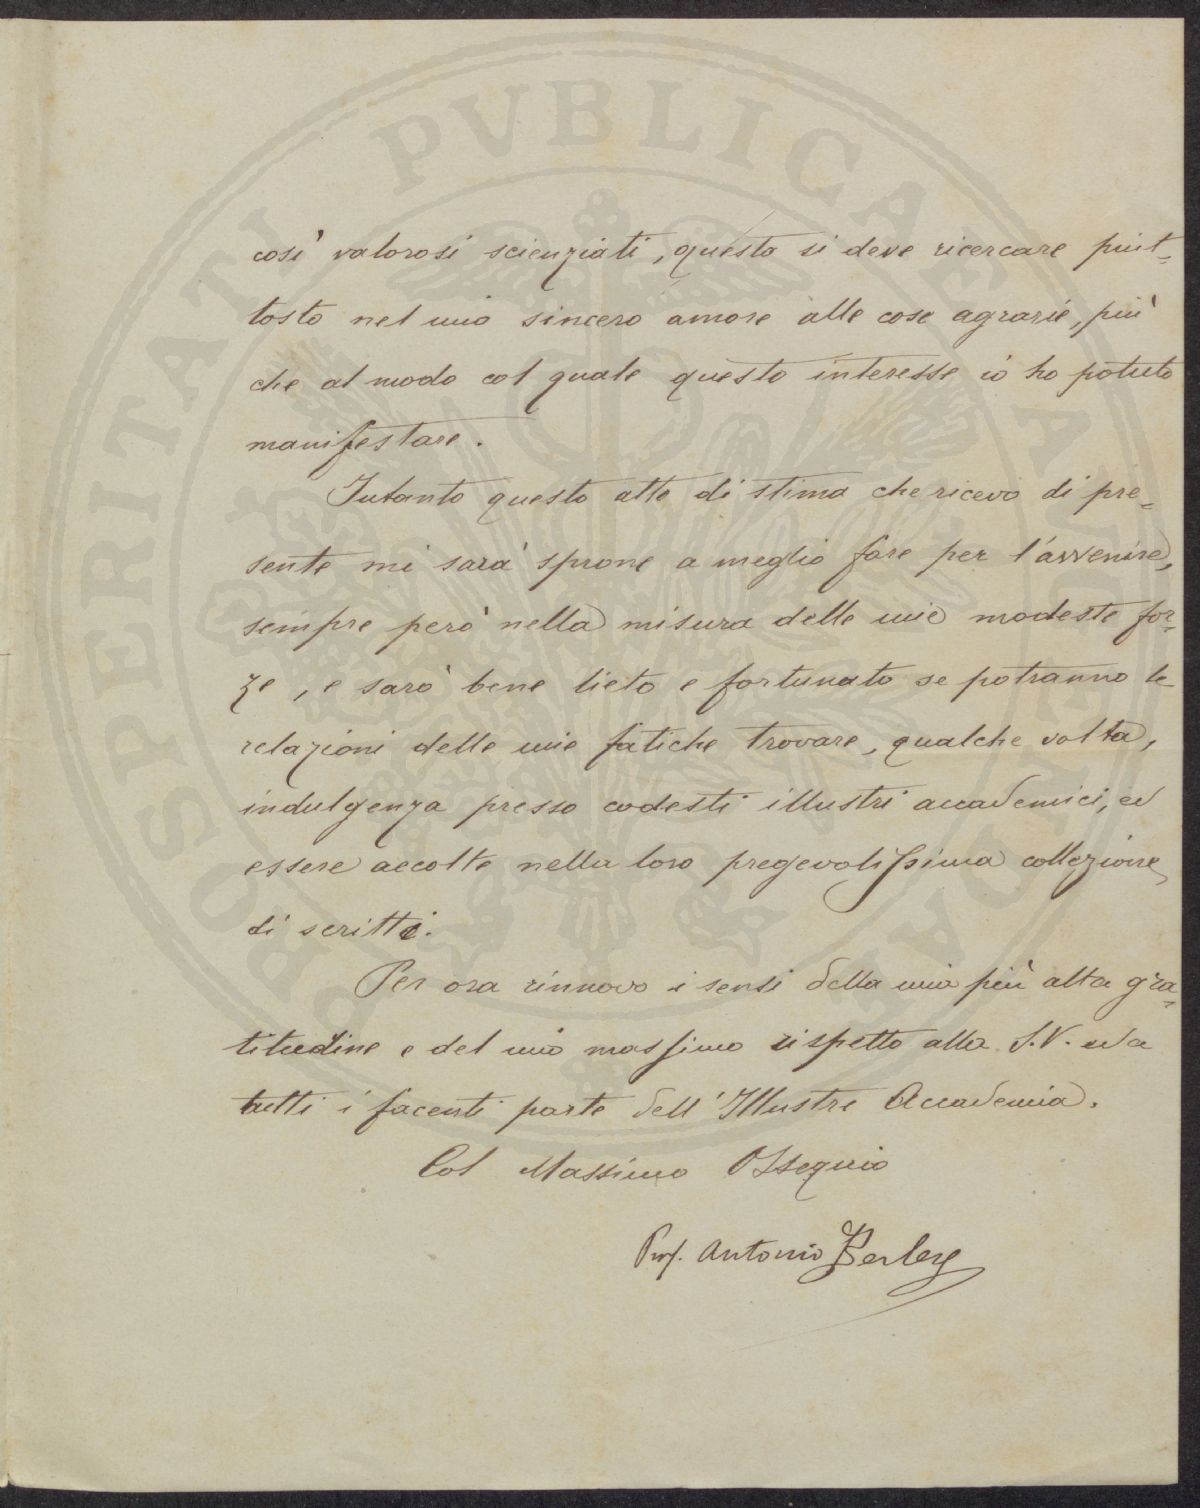 così valorosi scienziati, questo si deve ricercare piut-
tosto nel mio sincero amore alle cose agrarie, più
che al modo col quale questo interesse io ho potuto
manifestare.
Intanto questo atto di stima che ricevo di pre-
sente mi sarà sprone a meglio fare per l'avvenire,
sempre però nella misura delle mie modeste for-
ze, e sarò bene lieto e fortunato se potranno le
relazioni delle mie fatiche trovare, qualche volta,
indulgenza presso codesti illustri accademici, ed
essere accolte nella loro pregevolissima collezione
di scritti.
Per ora rinnovo i sensi della mia più alta gra-
titudine e del mio massimo rispetto alla S.V. ed a
tutti i facenti parte dell'Illustre Accademia.
Col Massimo Ossequio
Prof. Antonio Berlese
PROSPERITATI PVBLICAE AVGENDAE